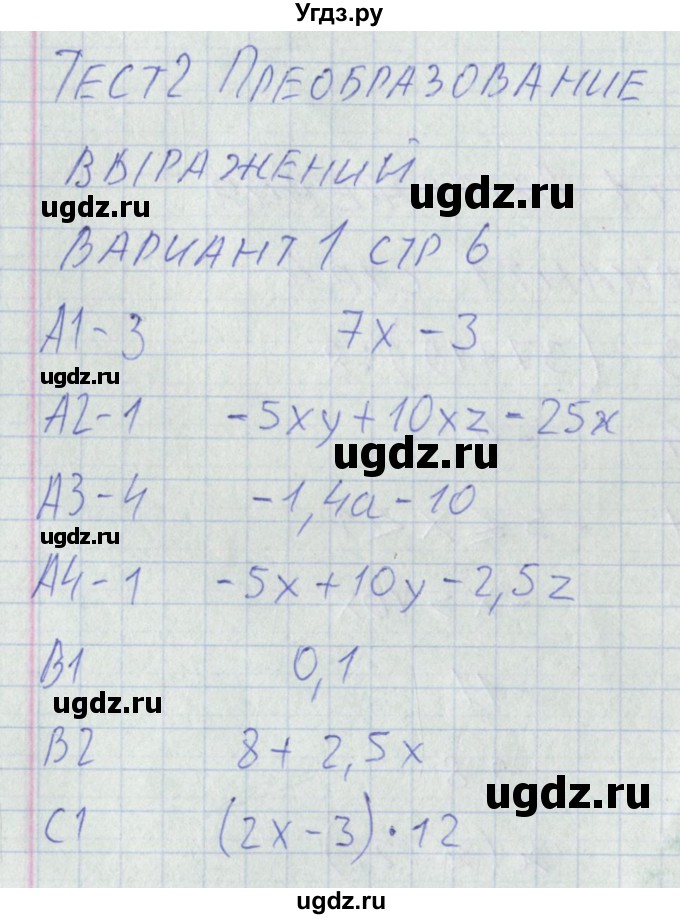 Угдз.ру
ТЕСТ2 ПРЕОБРАЗОВАНИЕ
ВЫРАЖЕНИЙ
ugdz.ru
ugdz.ru
ВАРИАНТ 1 СТР 6
А1-3 7x-3
ugdz.ru
А2-1 -5xy+10xz-25x
ugdz.ru
А3-4 -1,4a-10
ugdz.ru
А4-1 -5x+10y-2,5z
В1 0,1
ugdz.ru
В2 8+2,5x
ugdz.ru
С1 (2x-3)·12
ugdz.ru